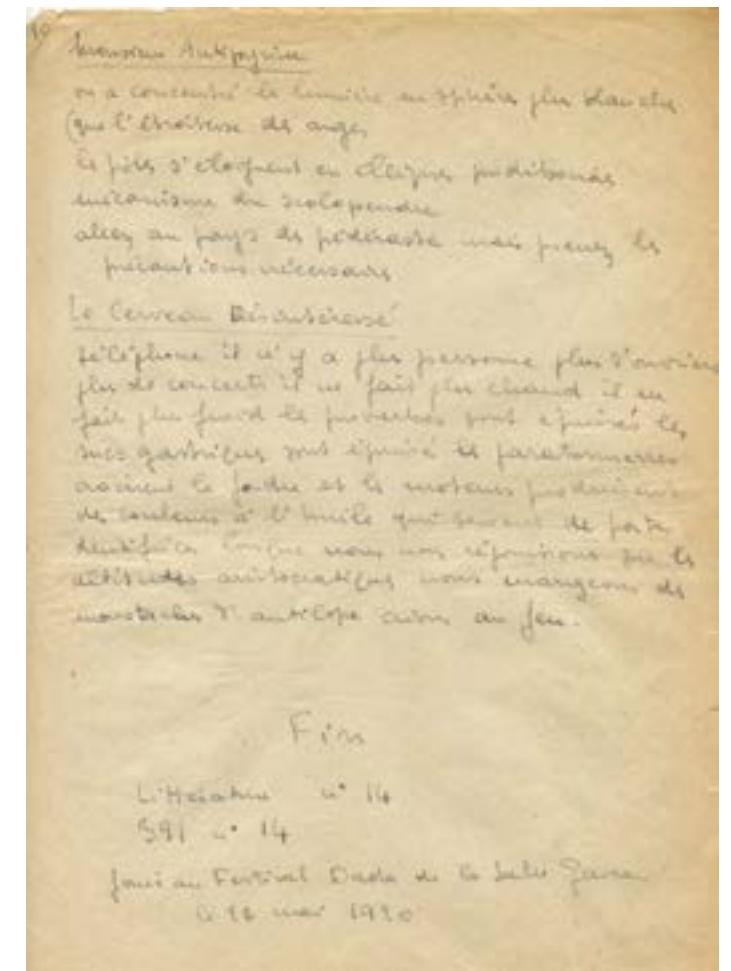 10
Monsieur Antipyrine
on a concentré la lumière en sphères plus blanches
(que l'étroitesse des anges
les s'éloignent en
mécanisme du scolopendre
allez au pays des pédérastes mais prenez les
précautions nécessaires
Le Cerveau Désintéressé
téléphone il n'y a plus personne plus d'ouvriers
plus de concerts il ne fait plus chaud il ne
fait plus froid les proverbes sont épuisés les
sucs gastriques sont épuisés les paratonnerres
la foudre et les moteurs produisent
des couleurs à l'huile qui servent de pâte
dentifrice lorsque nous nous réjouissons sur les
attitudes aristocratiques nous mangeons des
moustaches d'antilope cuites au feu.
Fin
Littérature n° 14
391 n° 14
Joué au Festival Dada de la Salle Gaveau
le mai 1920